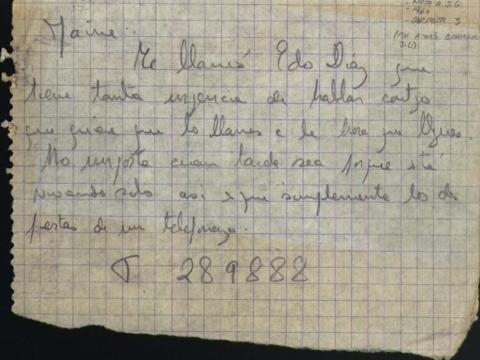 Jaime:
Me llamó Edo Díaz que
tiene tanta urgencia de hablar contgo
que quiere que lo llames a la hora que llgues.
No importa cuan tarde sea porque stá
solo así q que simplemente lo des
pertas de un telefonazo.
289888